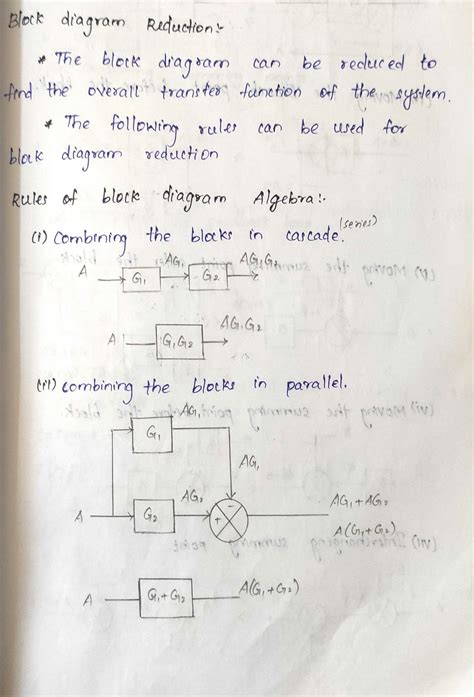 Block diagram Reduction:-
* The block diagram can be reduced to
find the overall transfer function of the system.
* The following rules can be used for
block diagram reduction
Rules of block diagram Algebra:-
(i) Combining the blocks in cascade. (series)
A G1 AG1 G2 AG1G2
A G1G2 AG1G2
(ii) combining the blocks in parallel.
AG1
G1
AG1
-
AG2
A G2 + AG1+AG2
A(G1+G2)
A G1+G2 A(G1+G2)